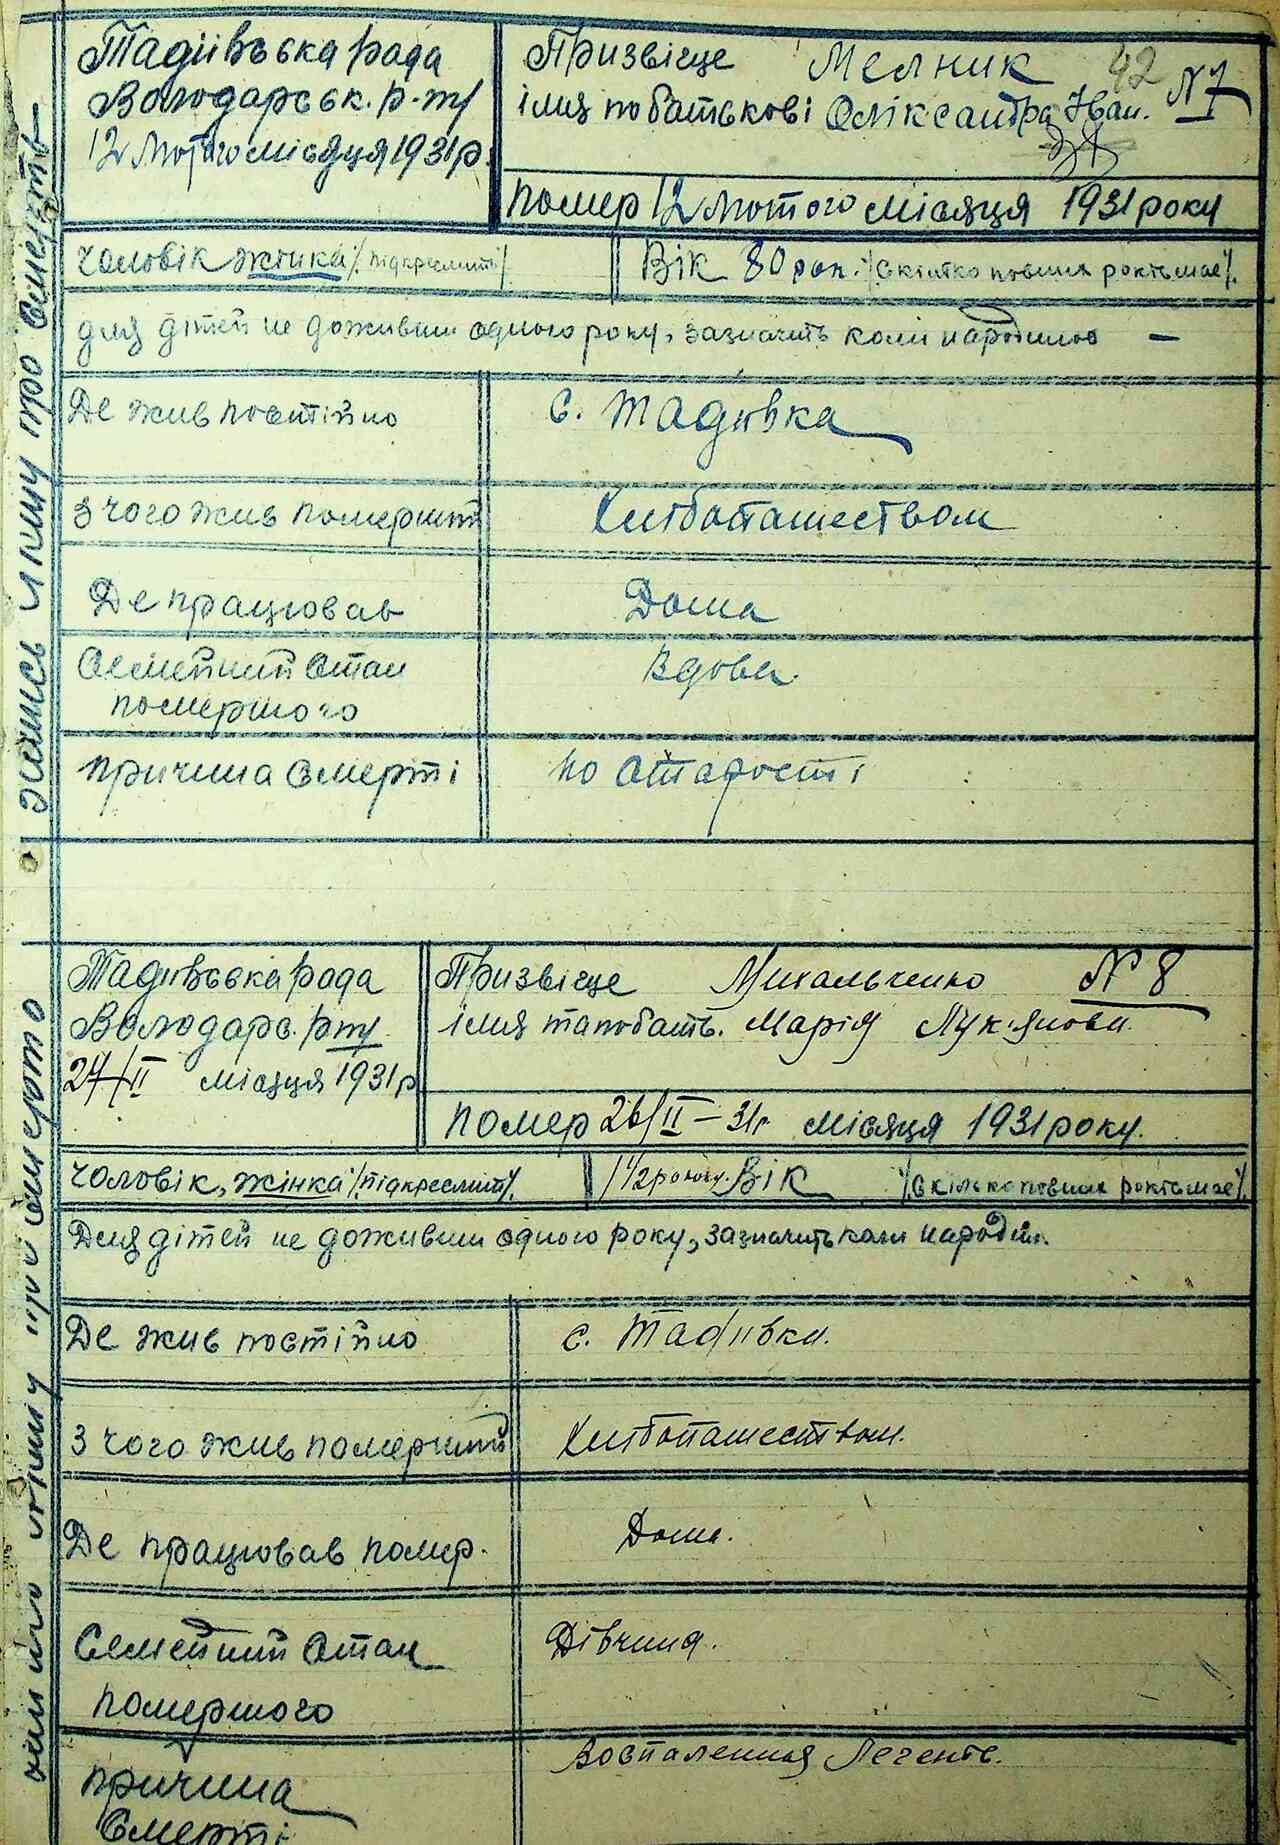 Тадіївська рада
Володарськ. р-ну
12 Лютого місяця 1931 р.
Призвісце Мелник 42 № 7
імя по батькові Оліксандра Іван.
помер 12 Лютого місяця 1931 року
чоловік жінка /підкреслить/
Вік 80 рок. /скілько повних років має/.
для дітей не доживши одного року, зазначить коли народилось —
Де жив постійно
с. Тадіівка
З чого жив померший
Хлібопашеством
Де працював
Дома
Семейний стан
помершого
Вдова
причина смерті
по старості
запись акту про смерть
Тадіівська рада
Володарс. р-ну
27/II місяця 1931 р
Призвісце Михальченко № 8
імя та по бать. Марія Лук'янова.
помер 26/II – 31 г. місяця 1931 року.
чоловік, жінка /підкреслить/.
1 1/2 року. Вік /скілько повних років має/.
Для дітей не доживши одного року, зазначить коли народил.
Де жив постійно
с. Тадіівки.
З чого жив померший
Хлібопашеством.
Де працював помер.
Дома.
Семейний стан
помершого
Дівчина.
причина
смерті
Воспаления Легенів.
акту про смерть